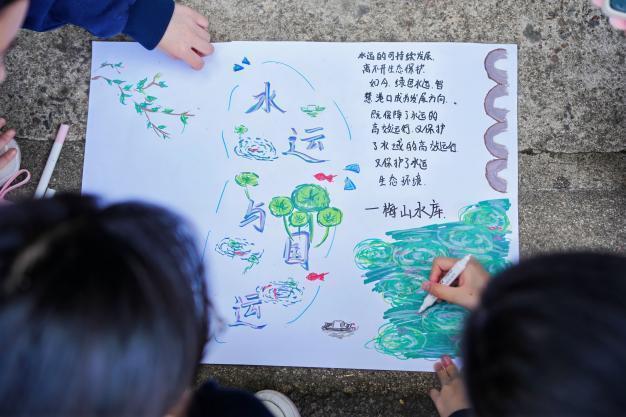 水运与国运
水运的可持续发展,
离不开生态保护.
如今,绿色水运,智
慧港口成为发展方向...
既保障了水运的
高效运行,又保护
了水域的高效运行
又保护了水运
生态环境.
—梅山水库.